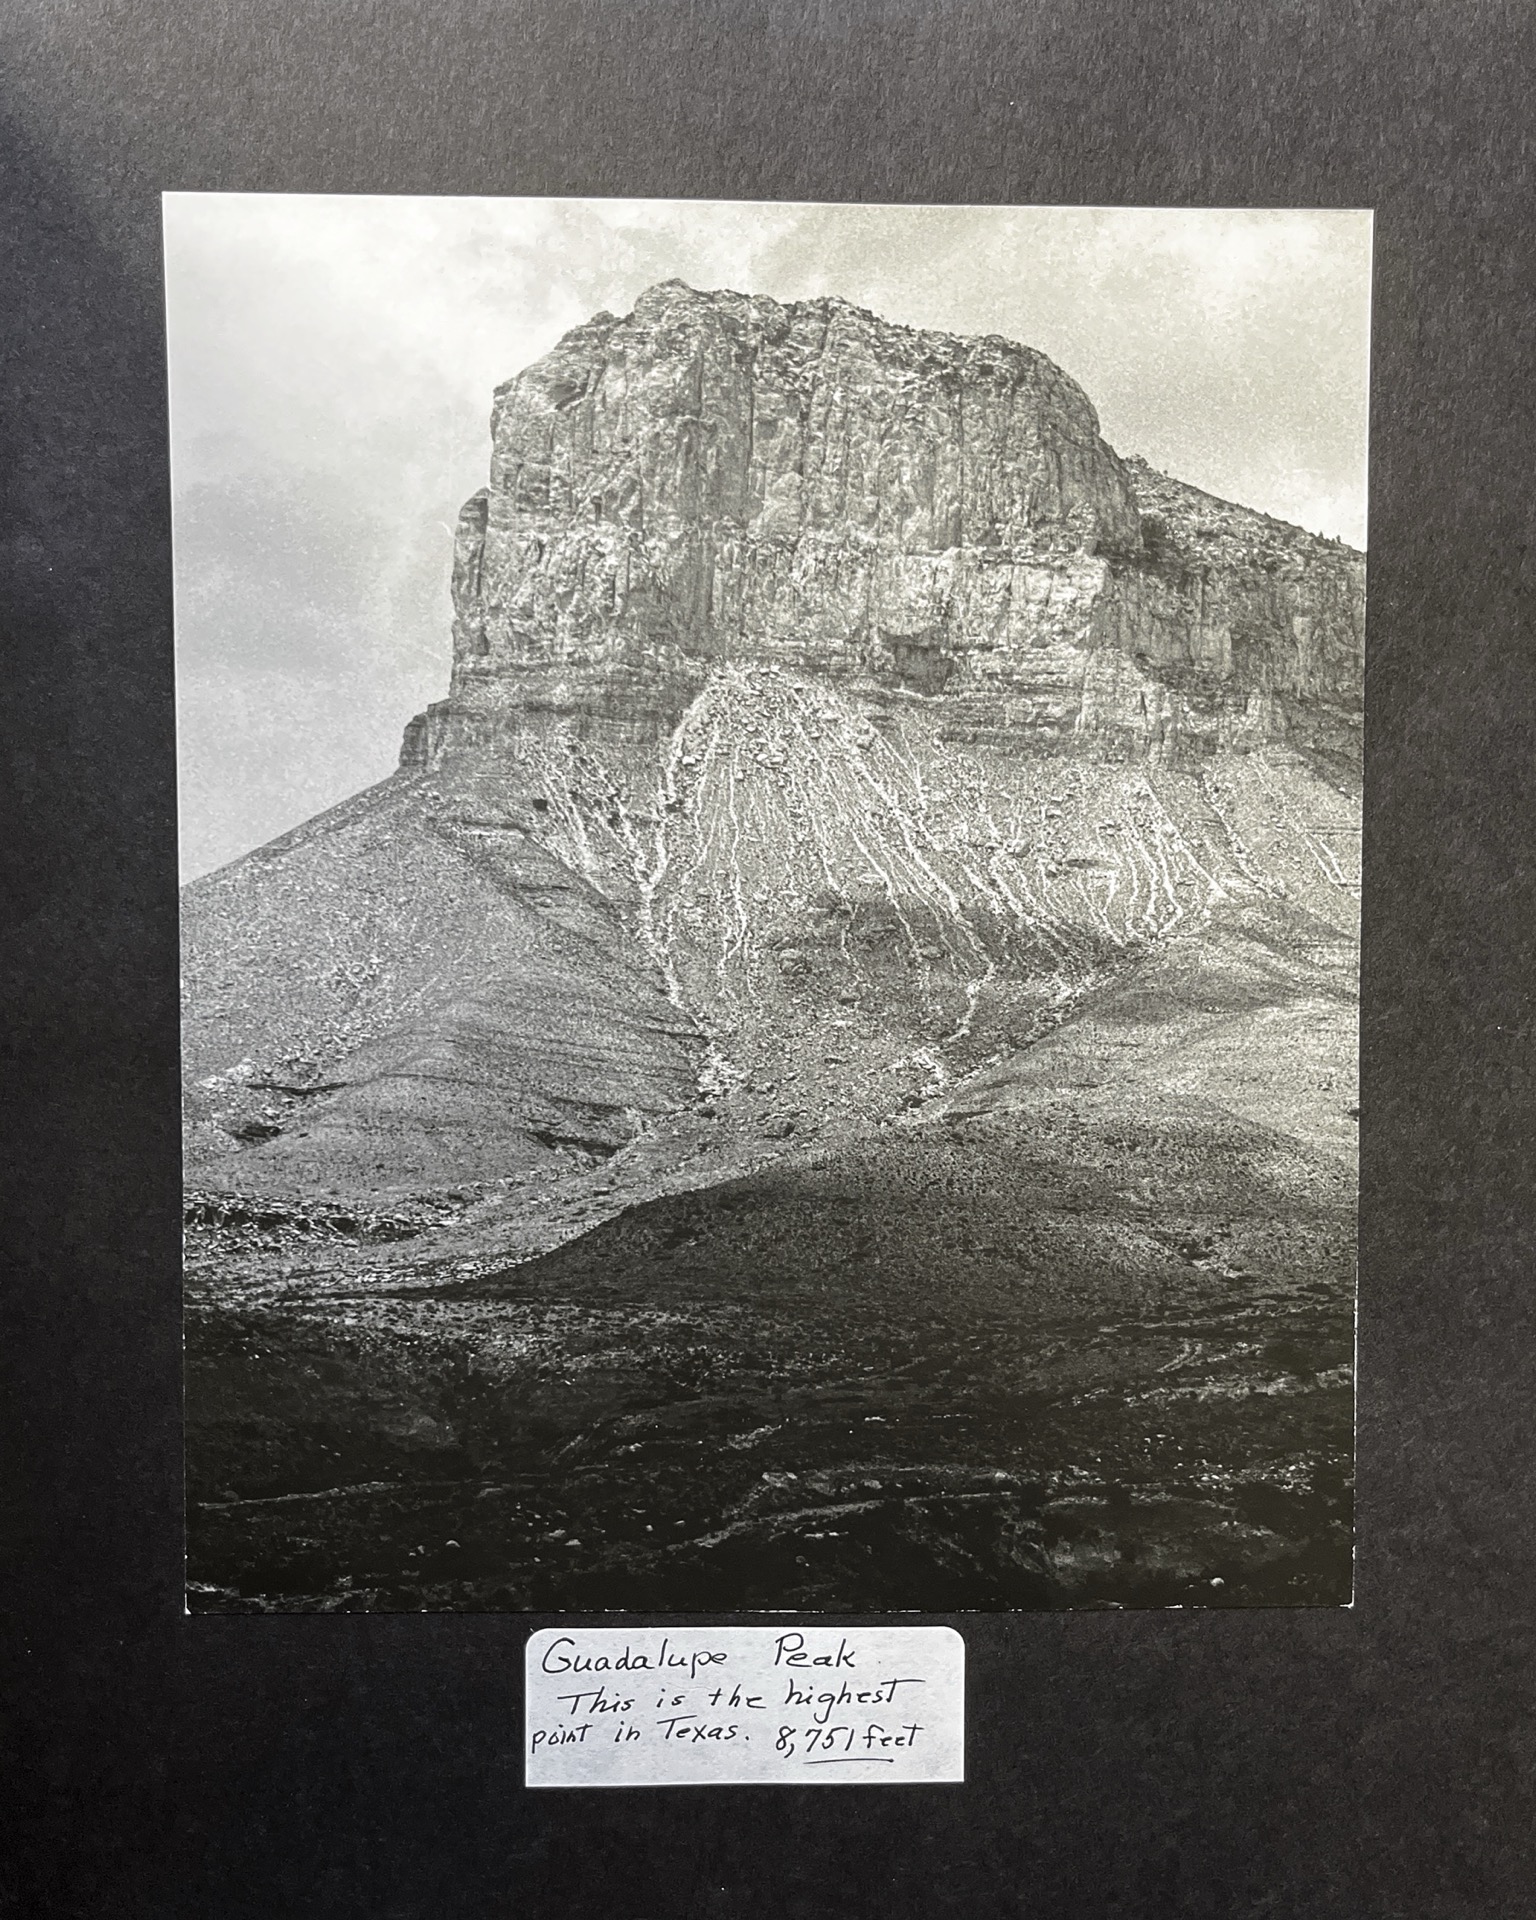 Guadalupe Peak
This is the highest
point in Texas. 8,751 feet